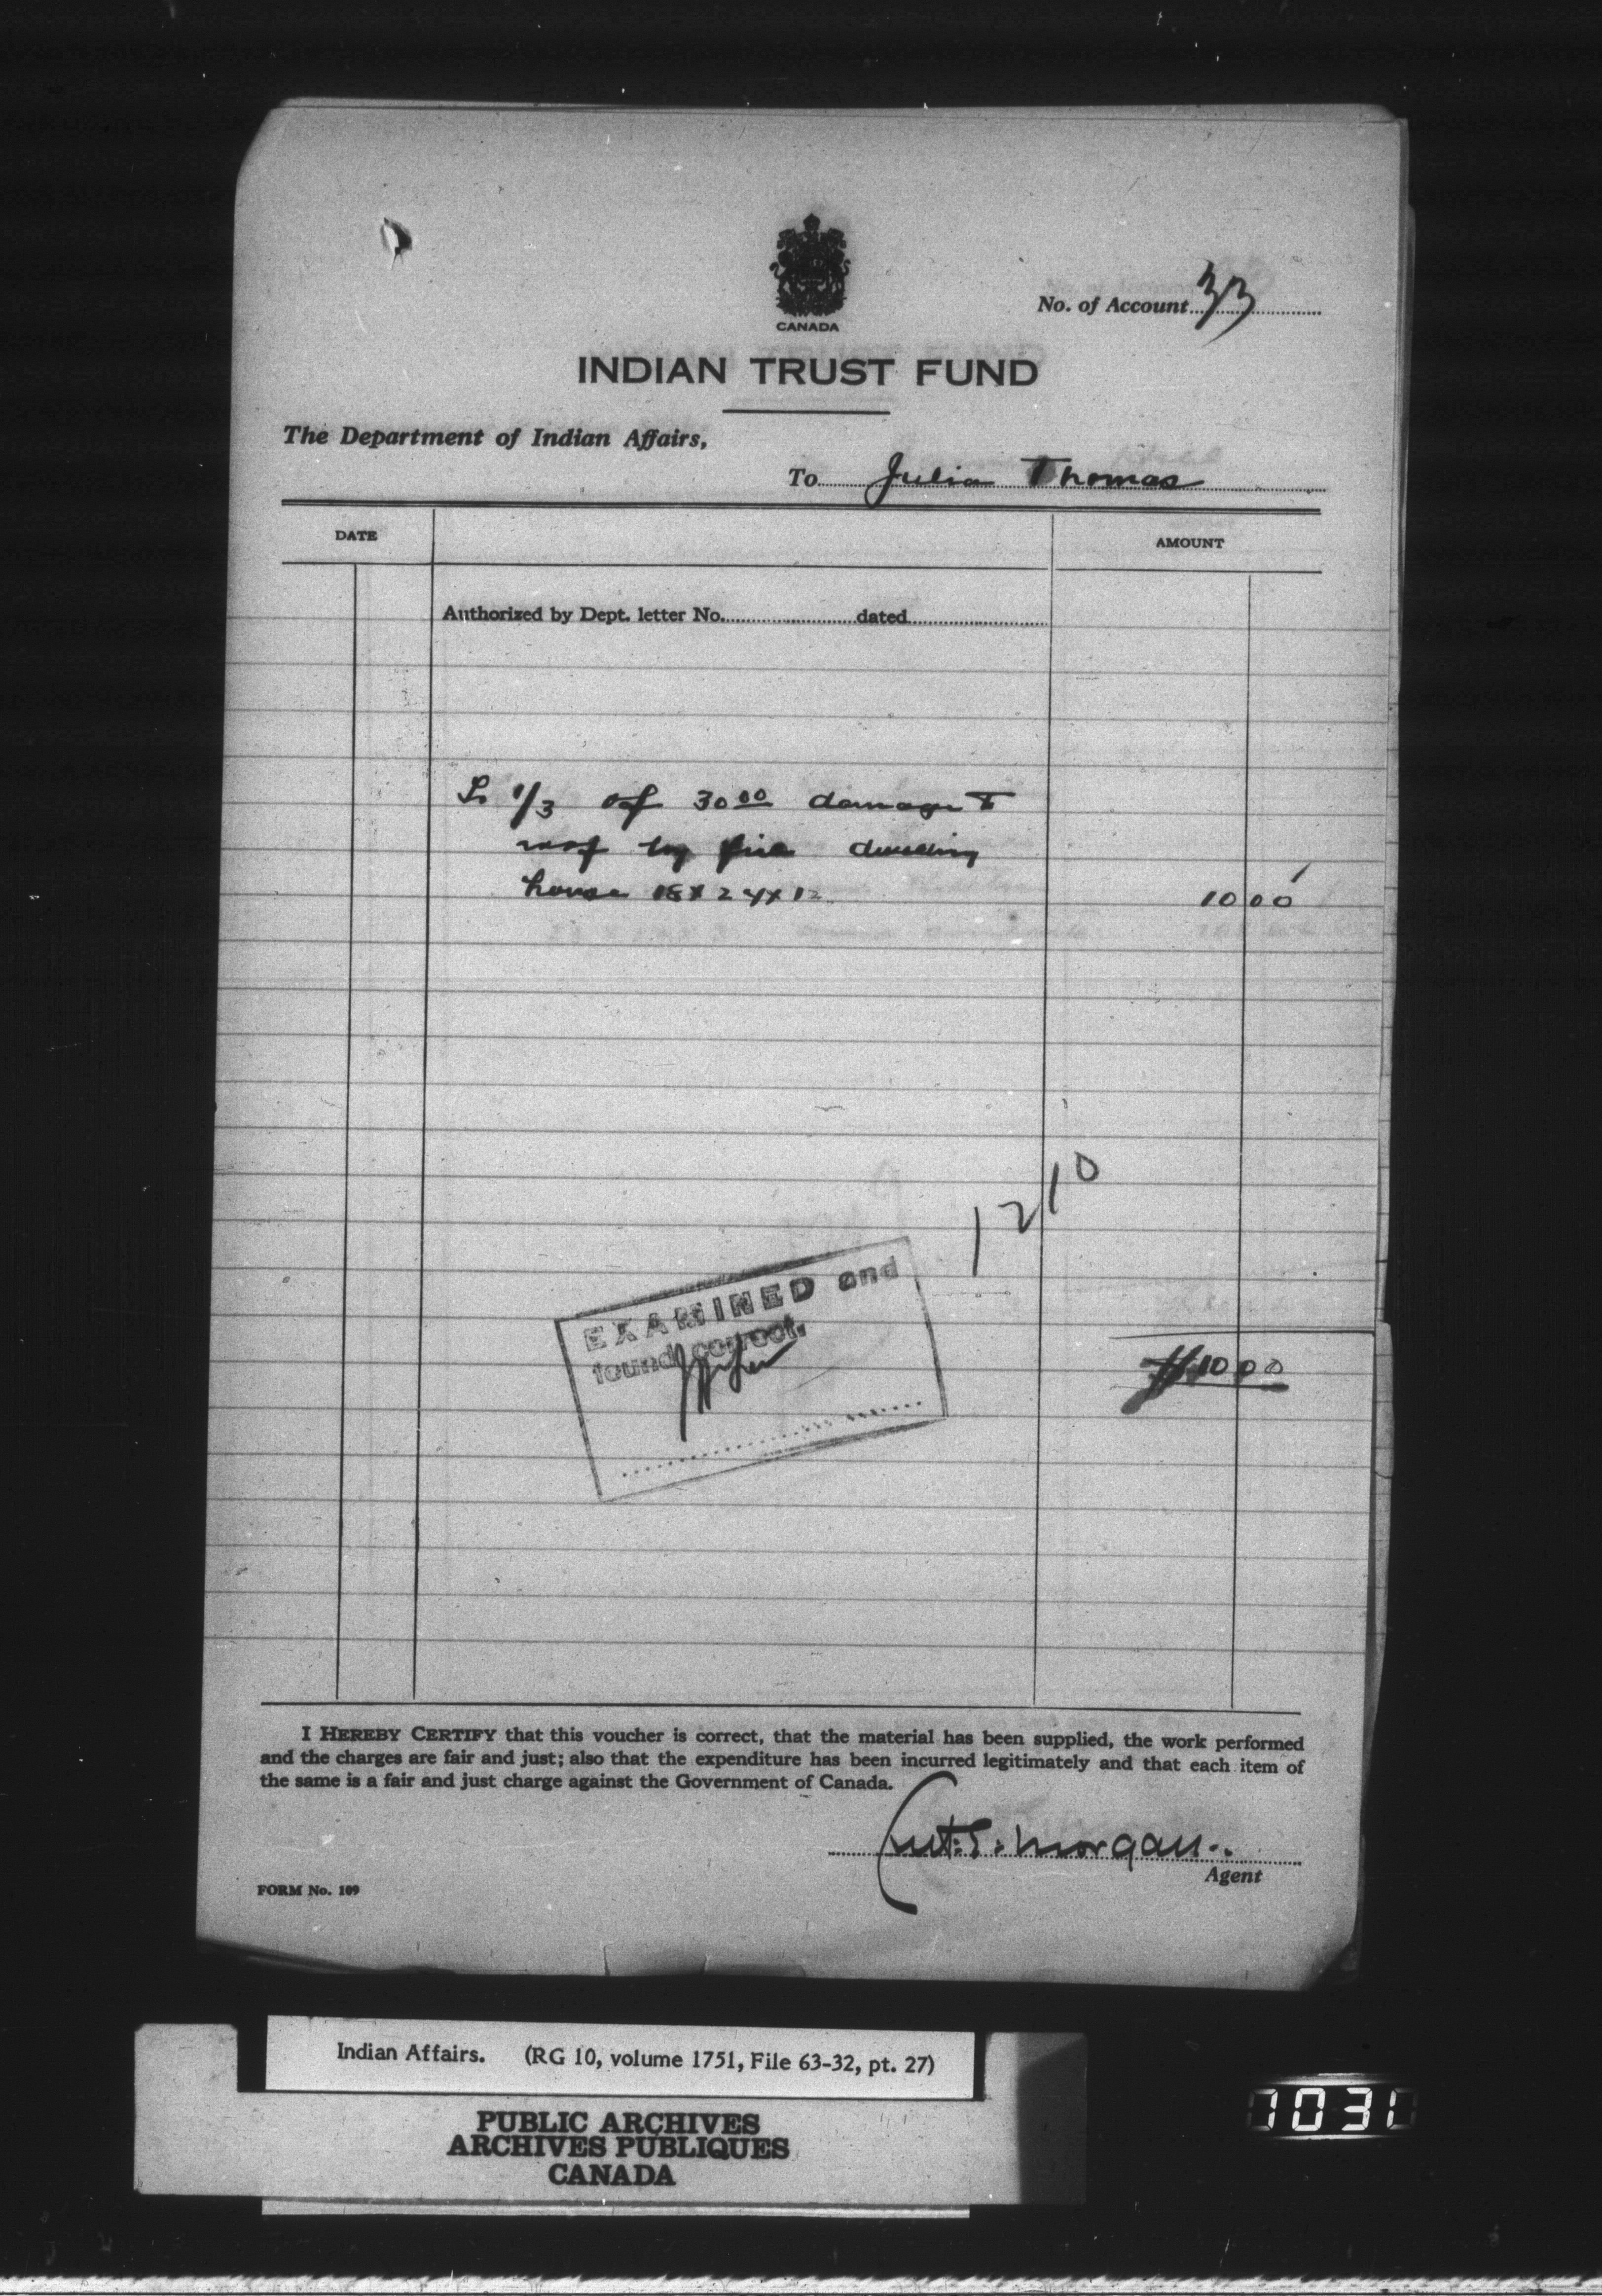 CANADA
No. of Account 33
INDIAN TRUST FUND
The Department of Indian Affairs,
To Julia Thomas
DATE
AMOUNT
Authorized by Dept. letter No. dated
To 1/3 of 30 00 damage to
roof by fire dwelling
house 18 x 24 x 12 10 00
1210
EXAMINED and
found correct.
$10 00
I HEREBY CERTIFY that this voucher is correct, that the material has been supplied, the work performed
and the charges are fair and just; also that the expenditure has been incurred legitimately and that each item of
the same is a fair and just charge against the Government of Canada.
Morgan
Agent
FORM No. 109
Indian Affairs. (RG 10, volume 1751, File 63-32, pt. 27)
PUBLIC ARCHIVES
ARCHIVES PUBLIQUES
CANADA